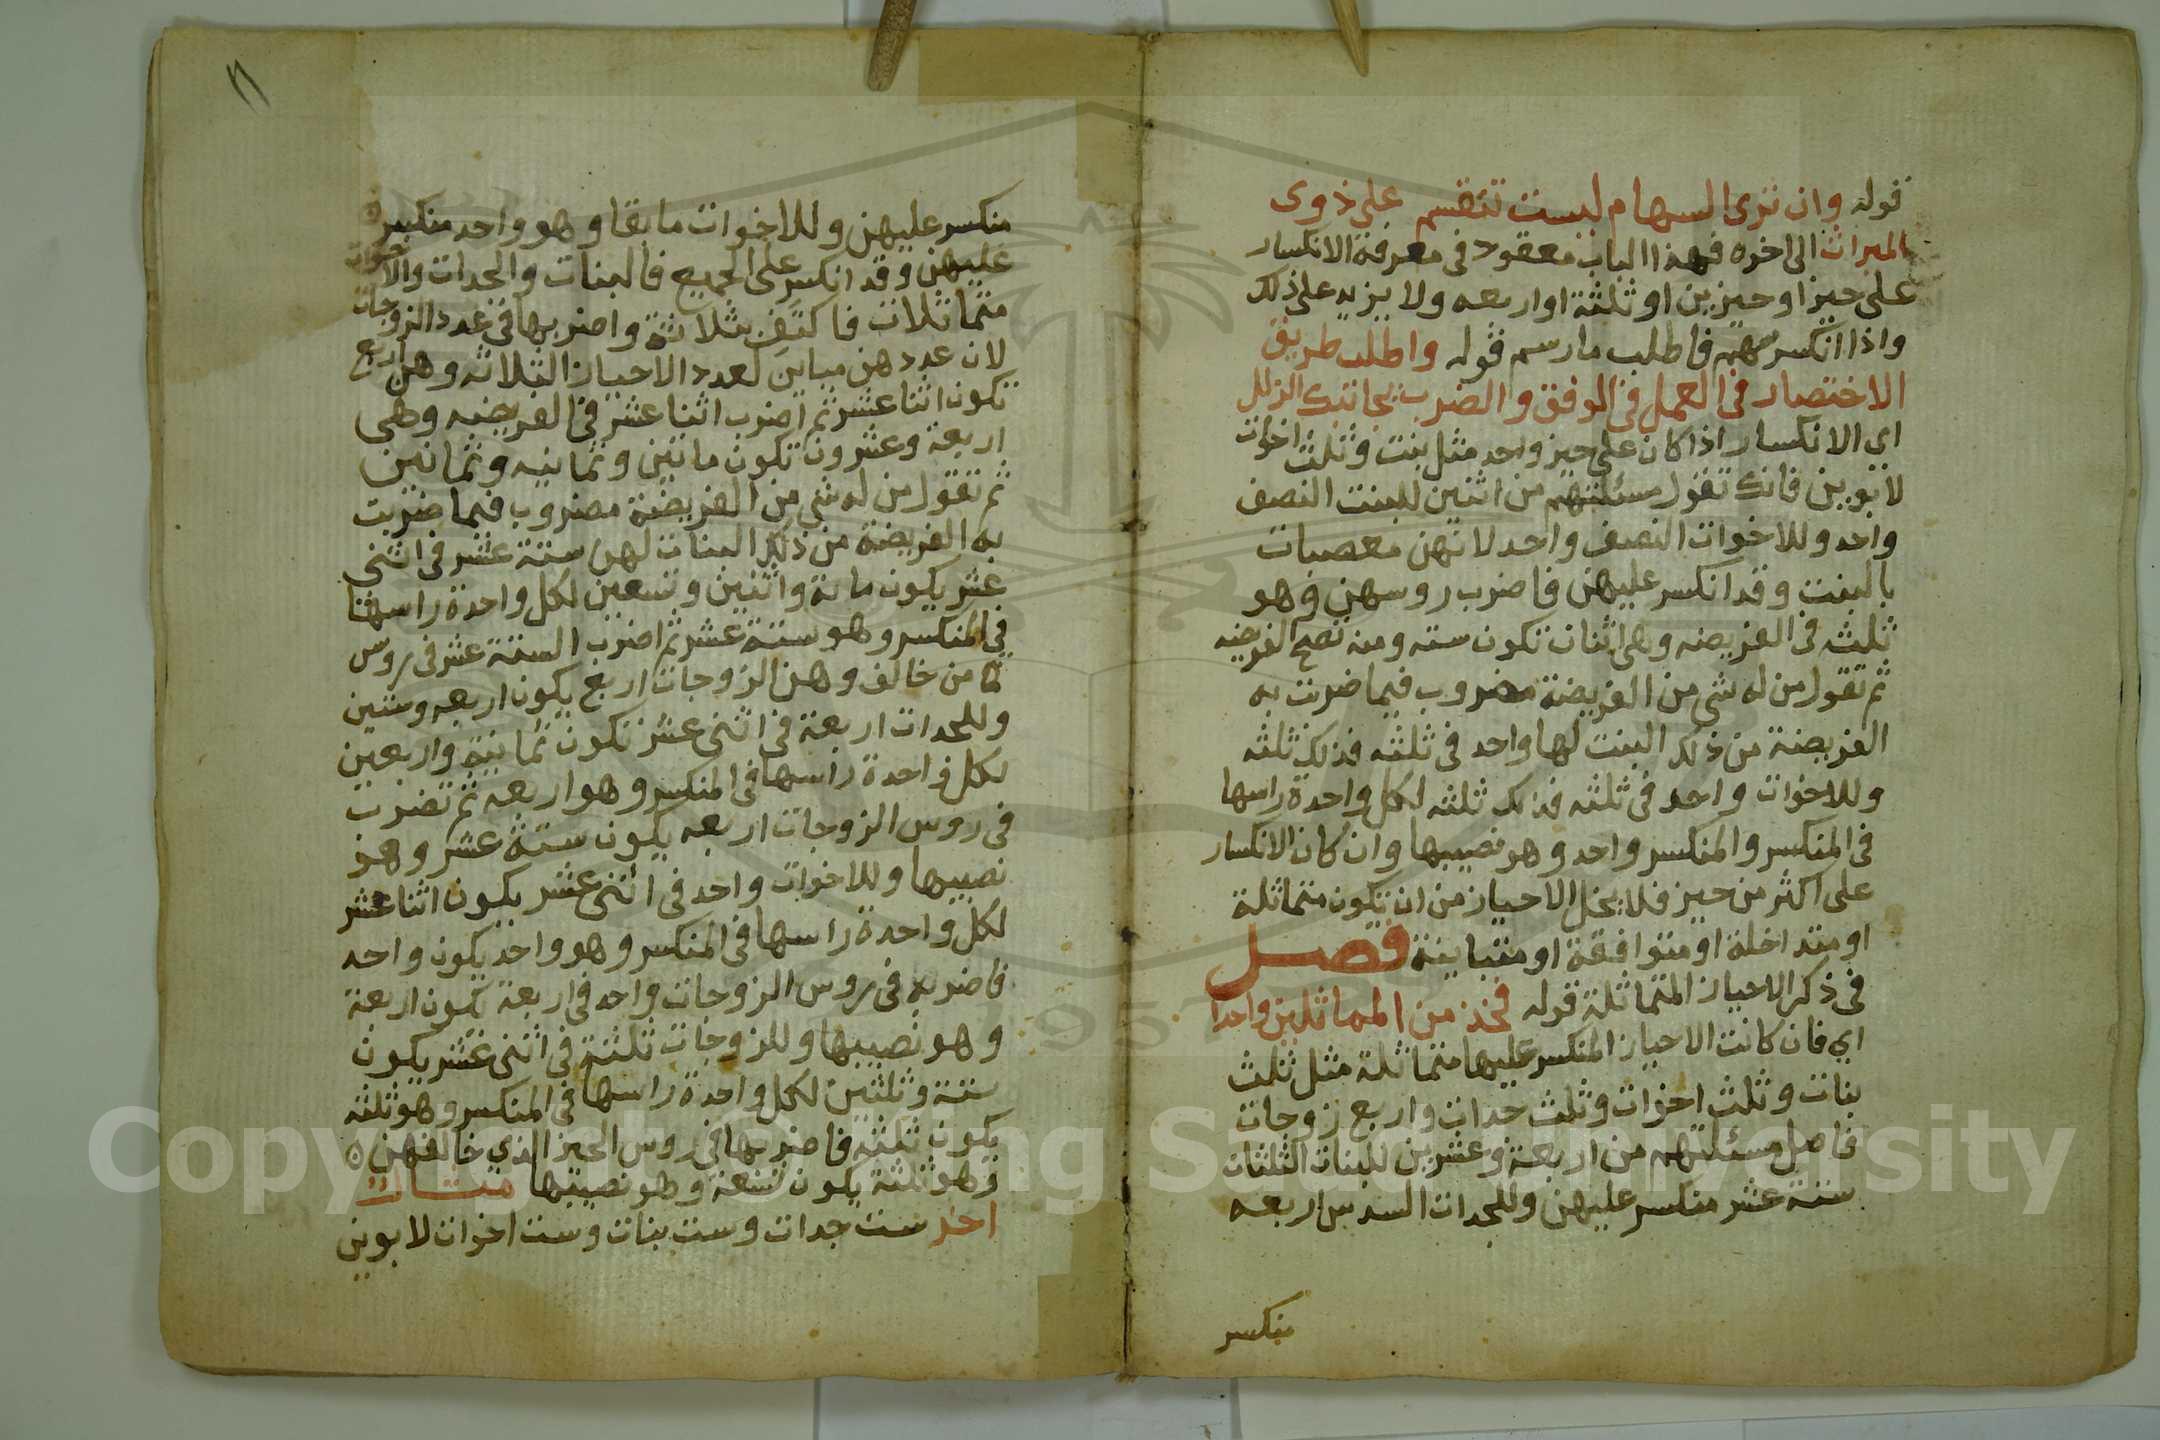 قوله وان ترى السهام ليست تنقسم على ذوى
الميراث الى اخره فهذا الباب معقود فى معرفة الانكسار
على حيز او حيزين او ثلثة او اربعه ولا يزيد على ذلك
واذا انكسر سهم فاطلب ما رسم قوله واطلب طريق
الاختصار فى العمل فى الوفق والضرب بجانبك الزلل
اي الانكسار اذا كان على حيز واحد مثل بنت وثلث اخوات
لابوين فانك تقول مسئلتهم من اثنين للبنت النصف
واحد وللاخوات النصف واحد لانهن معصبات
بالبنت وقد انكسر عليهن فاضرب روسهن وهو
ثلثه فى الفريضه وهى اثنان تكون سته ومنه تصح الفريضه
ثم تقول من له شى من الفريضة مضروب فيما ضربت به
الفريضة من ذلك البنت لها واحد فى ثلثه فذلك ثلثه
وللاخوات واحد فى ثلثه فذالك ثلثه لكل واحدة راسها
فى المنكسر والمنكسر واحد وهو نصيبها وان كان الانكسار
على اكثر من حيز فلا يخل الاحياز من ان تكون متماثلة
او متداخلة او متوافقة او متباينة فصل
فى ذكر الاحياز المتماثلة قوله فخذ من المماثلين واحدا
اي فان كانت الاحياز المنكسر عليها متماثلة مثل ثلث
بنات وثلث اخوات وثلث جدات واربع زوجات
فاصل مسئلتهم من اربعة وعشرين للبنات الثلثان
ستة عشر منكسر عليهن وللجدات السدس اربعه
منكسر
١١
منكسر عليهن وللاخوات ما بقا وهو واحد منكسر
عليهن وقد انكسر على الجميع فالبنات والجدات والاخوات
متماثلات فاكتف بثلاثة واضربها فى عدد الزوجات
لان عددهن مباين لعدد الاحياز الثلاثه وهن اربع
تكون اثنا عشر ثم اضرب اثنا عشر فى الفريضه وهى
اربعة وعشرون تكون مايتين وثمانيه وثمانين
ثم تقول من له شى من الفريضة مضروب فيما ضربت
به الفريضة من ذلك البنات لهن ستة عشر فى اثنى
عشر يكون ماية واثنين وتسعين لكل واحدة راسها
فى المنكسر وهو ستة عشر ثم اضرب الستة عشر فى روس
من خالف وهن الزوجات اربع يكون اربعه وستين
وللجدات اربعة فى اثنى عشر تكون ثمانية واربعين
لكل واحدة راسها فى المنكسر وهو اربعه ثم تضرب
فى روس الزوجات اربعه يكون ستة عشر وهو
نصيبها وللاخوات واحد فى اثنى عشر يكون اثنا عشر
لكل واحدة راسها فى المنكسر وهو واحد يكون واحد
فاضربه فى روس الزوجات واحد فى اربعة يكون اربعة
وهو نصيبها وللزوجات ثلثة فى اثنى عشر يكون
ستة وثلثين لكل واحدة راسها فى المنكسر وهو ثلثه
يكون ثلثة فاضربها فى روس الحيز الذي خالفهن ه
وهو ثلثة يكون تسعة وهو نصيبها مثال
اخر ست جدات وست بنات وست اخوات لابوين
Copyright © King Saud University
1957